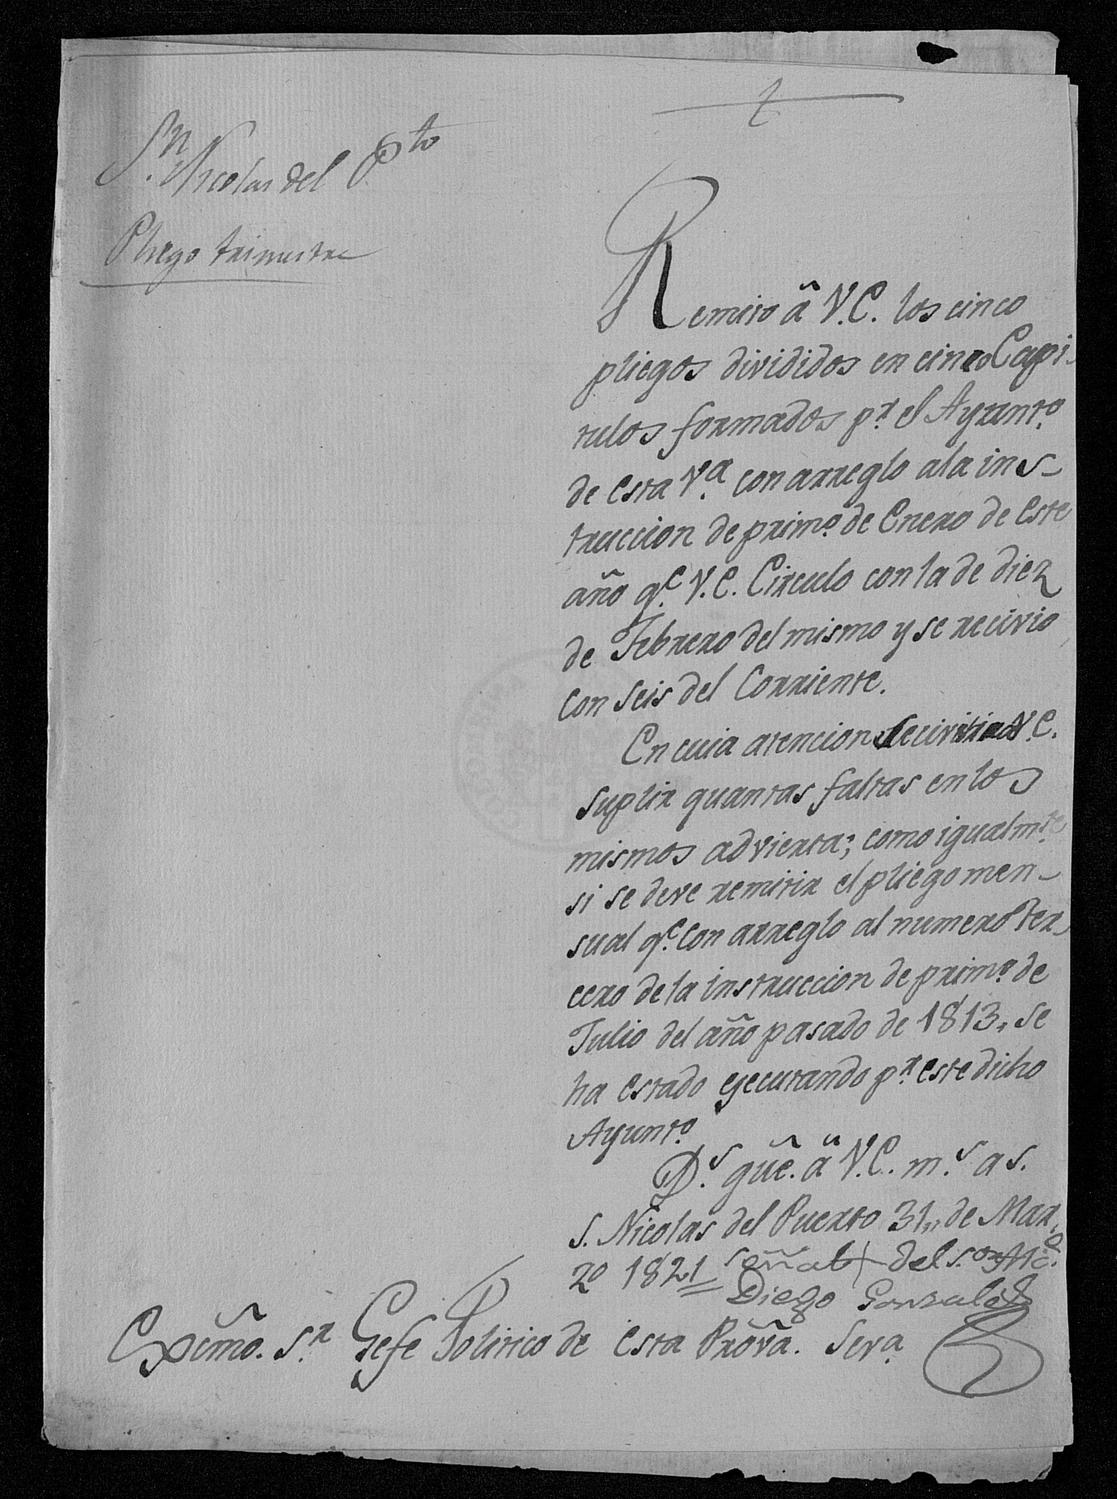 Sn. Nicolas del Pto
Pliego trimestre
Remito â V.E. los cinco
pliegos divididos en cinco Capi-
tulos formados pr. el Ayunto.
de esta Va. con arreglo a la ins-
truccion de primo. de Enero de este
año qe. V.E. Circulo con la de diez
de Febrero del mismo y se recivio
con seis del Corriente.
En cuia atencion V.E.
suplir quantas faltas en los
mismos advierta; como igualmte.
si se deve remitir el pliego men-
sual qe. con arreglo al numero ter-
cero de la instruccion de primo. de
Julio del año pasado de 1813, se
ha estado egecutando pr. este dicho
Ayunto.
Ds. gûe. â V.E. ms. as.
S. Nicolas del Puerto 31,, de Mar-
zo 1821 señal + del Sor. Alce.
Diego Gonzalez
Excmo. Sr. Gefe Politico de esta Prova. Seva.